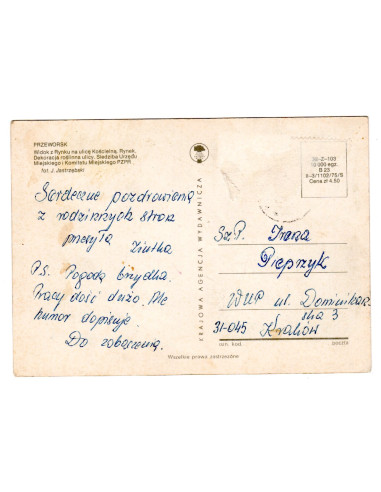 PRZEWORSK
Widok z Rynku na ulicę Kościelną, Rynek.
Dekoracja roślinna ulicy. Siedziba Urzędu
Miejskiego i Komitetu Miejskiego PZPR
fot. J. Jastrzębski
Serdeczne pozdrowienia
z rodzinnych stron
przesyła
Ziutka
P.S. Pogoda brzydka.
Pracy dość dużo. Ale
humor dopisuje.
Do zobaczenia.
KRAJOWA AGENCJA WYDAWNICZA
10 000 egz.
B 23
Cena zł 4.50
Sz.P. Irena
Pieprzyk
WUP ul. Dominikań
ska 3
31-045 Kraków
Wszelkie prawa zastrzeżone